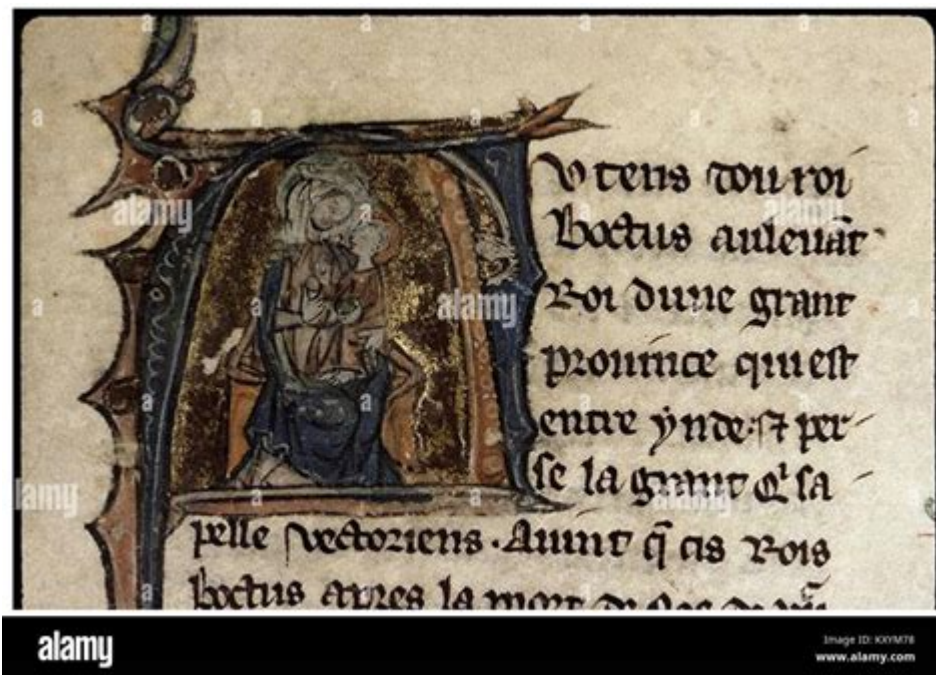 U tens dou roi
boctus au leuāt
Roi dune grant
prouince qui est
entre ynde ⁊ per
se la grant q̄ sa
pelle vectoriens . Auint q̄ cis Rois
boctus apres la mort
alamy
Image ID: KXYM78
www.alamy.com